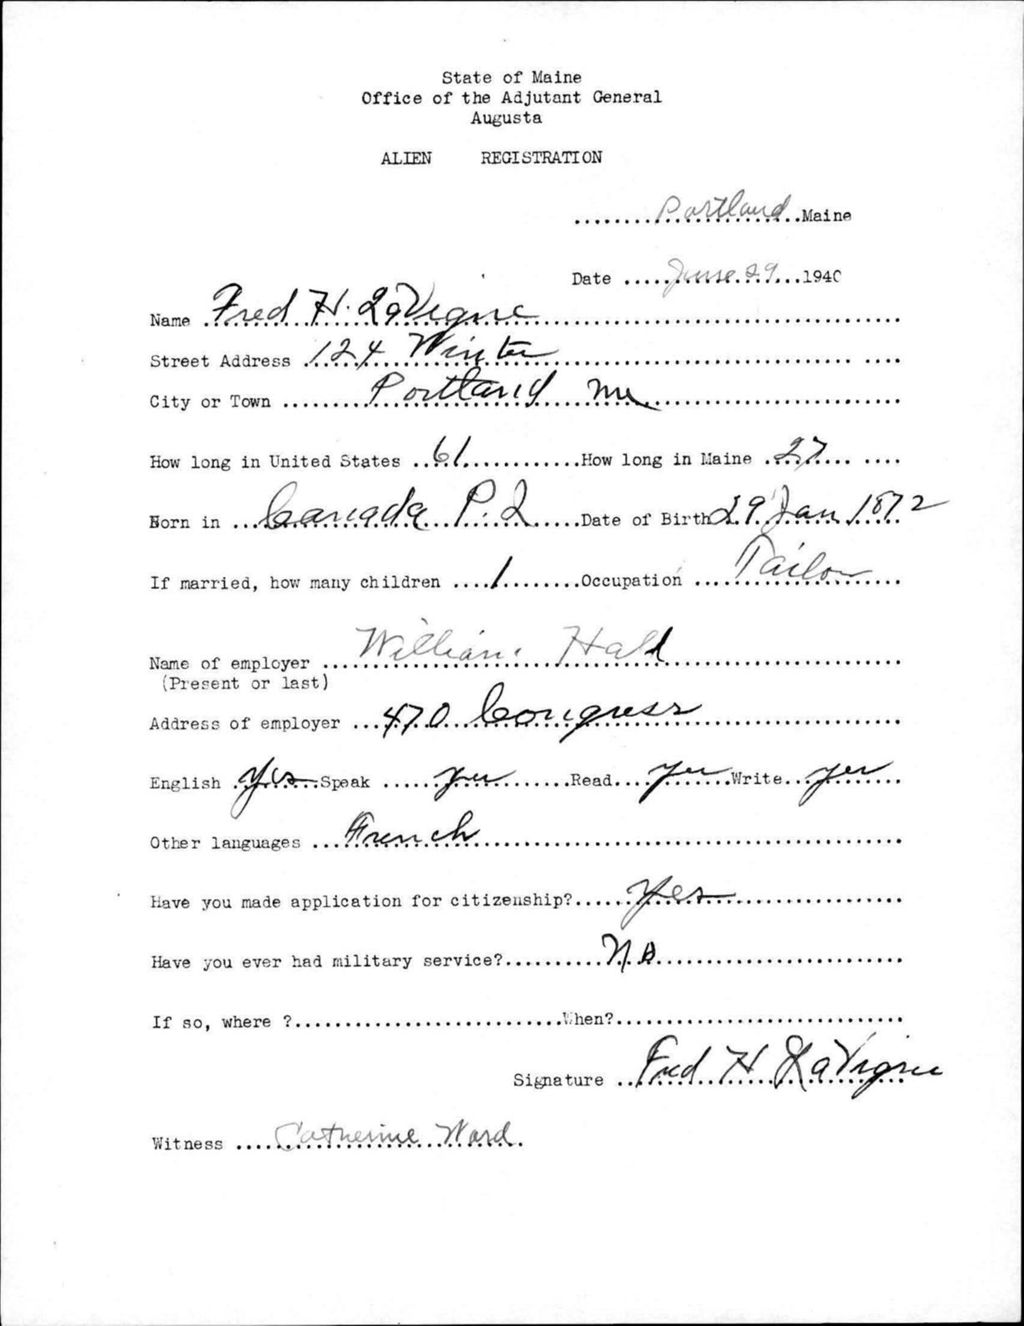 State of Maine
Office of the Adjutant General
Augusta
ALIEN REGISTRATION
Portland Maine
Date June 29 1940
Name Fred H. LaVigne
Street Address 124 Winter
City or Town Portland Me
How long in United States 61 How long in Maine 27
Born in Canada P. Q Date of Birth 29 Jan 1872
If married, how many children 1 Occupation Tailor
Name of employer William Hall
(Present or last)
Address of employer 470 Congress
English Yes Speak yes Read yes Write yes
Other languages French
Have you made application for citizenship? Yes
Have you ever had military service? No
If so, where ? When?
Signature Fred H LaVigne
Witness Catherine Ward